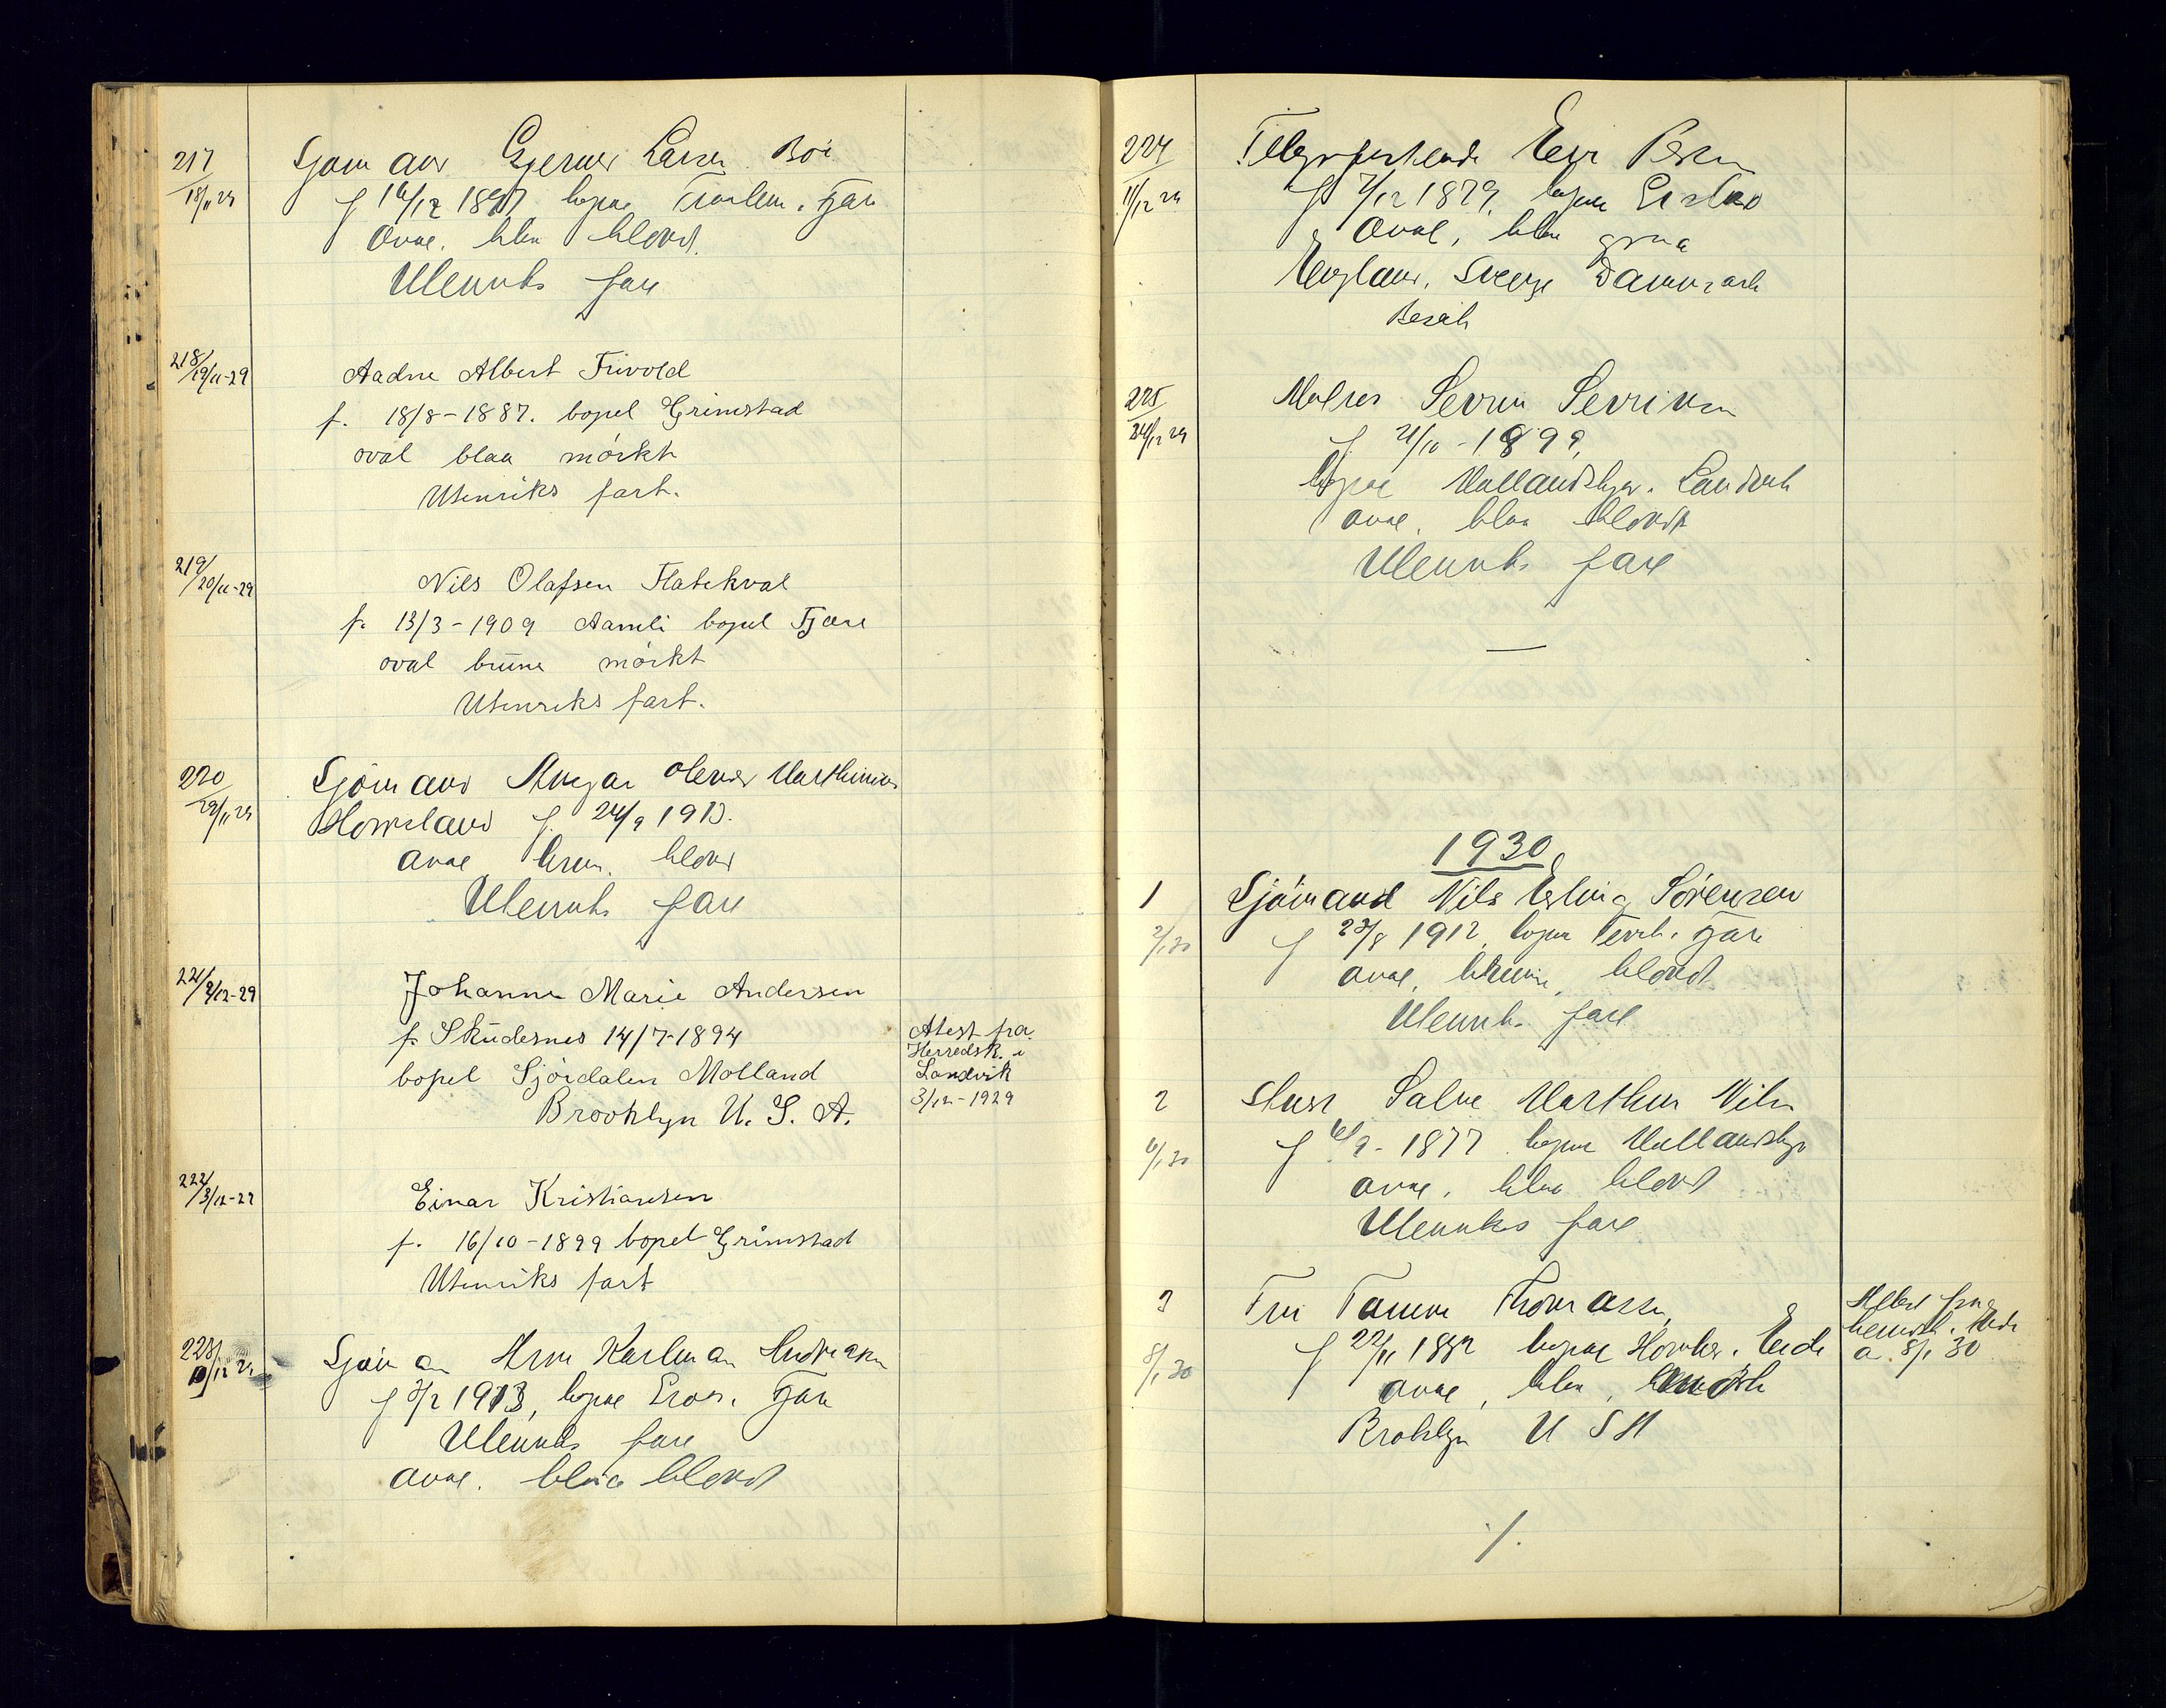 217
18/11 29
Sjømand Gjerner Larsen Boi
f 16/12 1897 bopæl Fjære
Oval. blaa blond.
Utenriks fart
218/19/11-29
Aadne Albert Trivold
f. 18/8-1887. bopel Grimstad
oval blaa mörkt
Utenriks fart.
219/20/11-29
Nils Olafsen Flatekval
f. 13/3-1909 Aamli bopel Fjære
oval brune mörkt
Utenriks fart.
220
29/11 29
Sjömand Ansgar Marthinius
f. 24/9 1913.
oval brun. blond
Utenriks fart
221/2/12-29
Johanne Marie Andersen
f. Skudesnes 14/7-1894
bopel Sjördalen Molland
Brooklyn U. S. A.
Atest fra
Herredsk. i
Landvik
3/12-1929
222/3/12-29
Einar Kristiansen
f. 16/10-1899 bopel Grimstad
Utenriks fart
223/
10/12 29
Sjöman Arne Karlman Andreasen
f 3/2 1913, bopæl Fjære
Utenriks fart
oval. blaa blond
224
11/12 29
f 7/12 1879. bopæl
Oval, blaa graa
England, Sverge Danmark
Besök
225
24/12 29
Matros Severin Severinsen
f 21/10-1899,
bopæl Mollandskjær. Landvik
oval. blaa blond
Utenriks fart
1930
1
2/1 30
Sjömand Nils Erling Sörensen
f 23/8 1912, bopæl Fevik. Fjære
oval, brune, blond
Utenriks fart
2
6/1 30
Stuert Salve Marthin Nilsen
f 6/9-1877 bopæl
oval. blaa blond
Utenriks fart
3
8/1 30
Fru Thomassen,
f 22/11 1882 bopæl Eide
oval, blaa, mörk
Brooklyn U S A
Attest fra
lensm. i Eide
a 8/1 30
/.